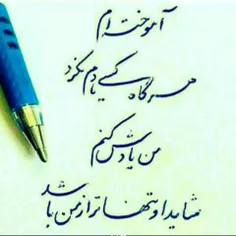 آموخته ام
هرگاه کسی یادم نکرد
من یادش کنم
شاید او تنهاتر از من باشد